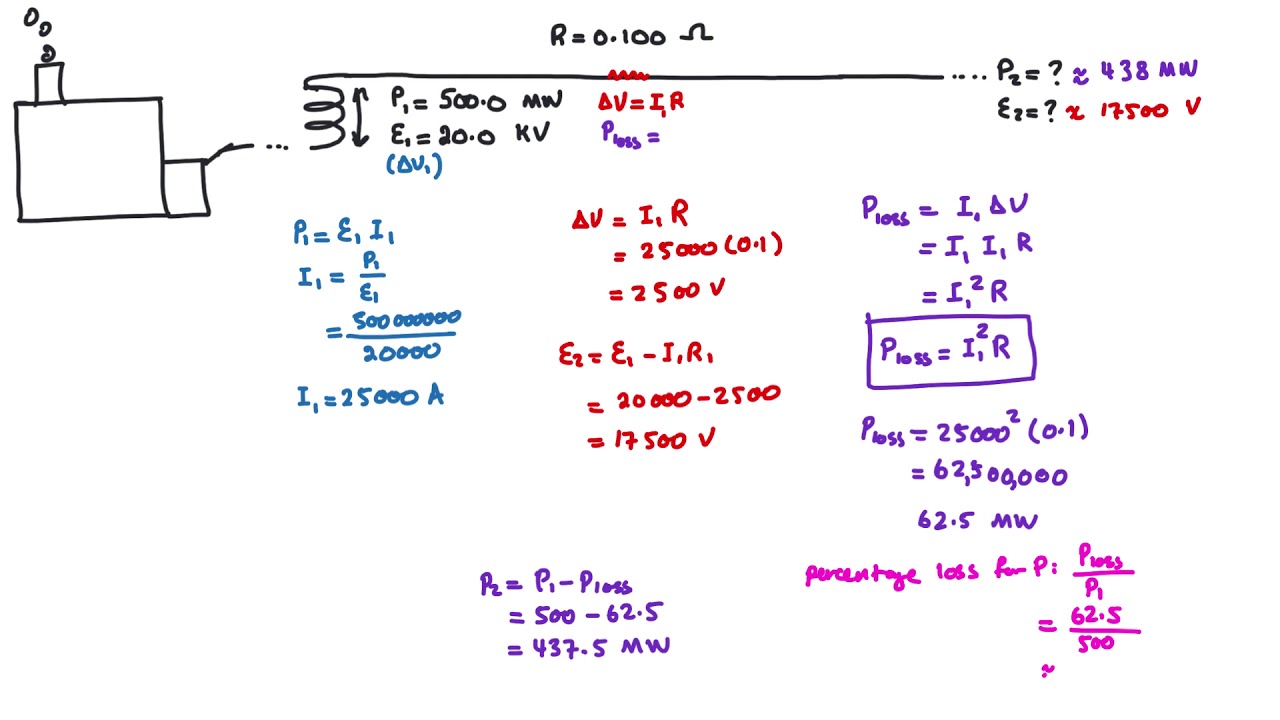 R = 0.100 Ω
P₁ = 500.0 MW
Ɛ₁ = 20.0 KV
(ΔV₁)
ΔV = I₁R
Ploss =
.... P₂ = ? ≈ 438 MW
Ɛ₂ = ? ≈ 17500 V
...
P₁ = Ɛ₁ I₁
I₁ = P₁/Ɛ₁
= 500000000/20000
I₁ = 25000 A
ΔV = I₁ R
= 25000 (0.1)
= 2500 V
Ɛ₂ = Ɛ₁ - I₁R₁
= 20000 - 2500
= 17500 V
Ploss = I₁ ΔV
= I₁ I₁ R
= I₁² R
Ploss = I₁² R
Ploss = 25000² (0.1)
= 62,500,000
62.5 MW
P₂ = P₁ - Ploss
= 500 - 62.5
= 437.5 MW
percentage loss for P: Ploss/P₁
= 62.5/500
≈